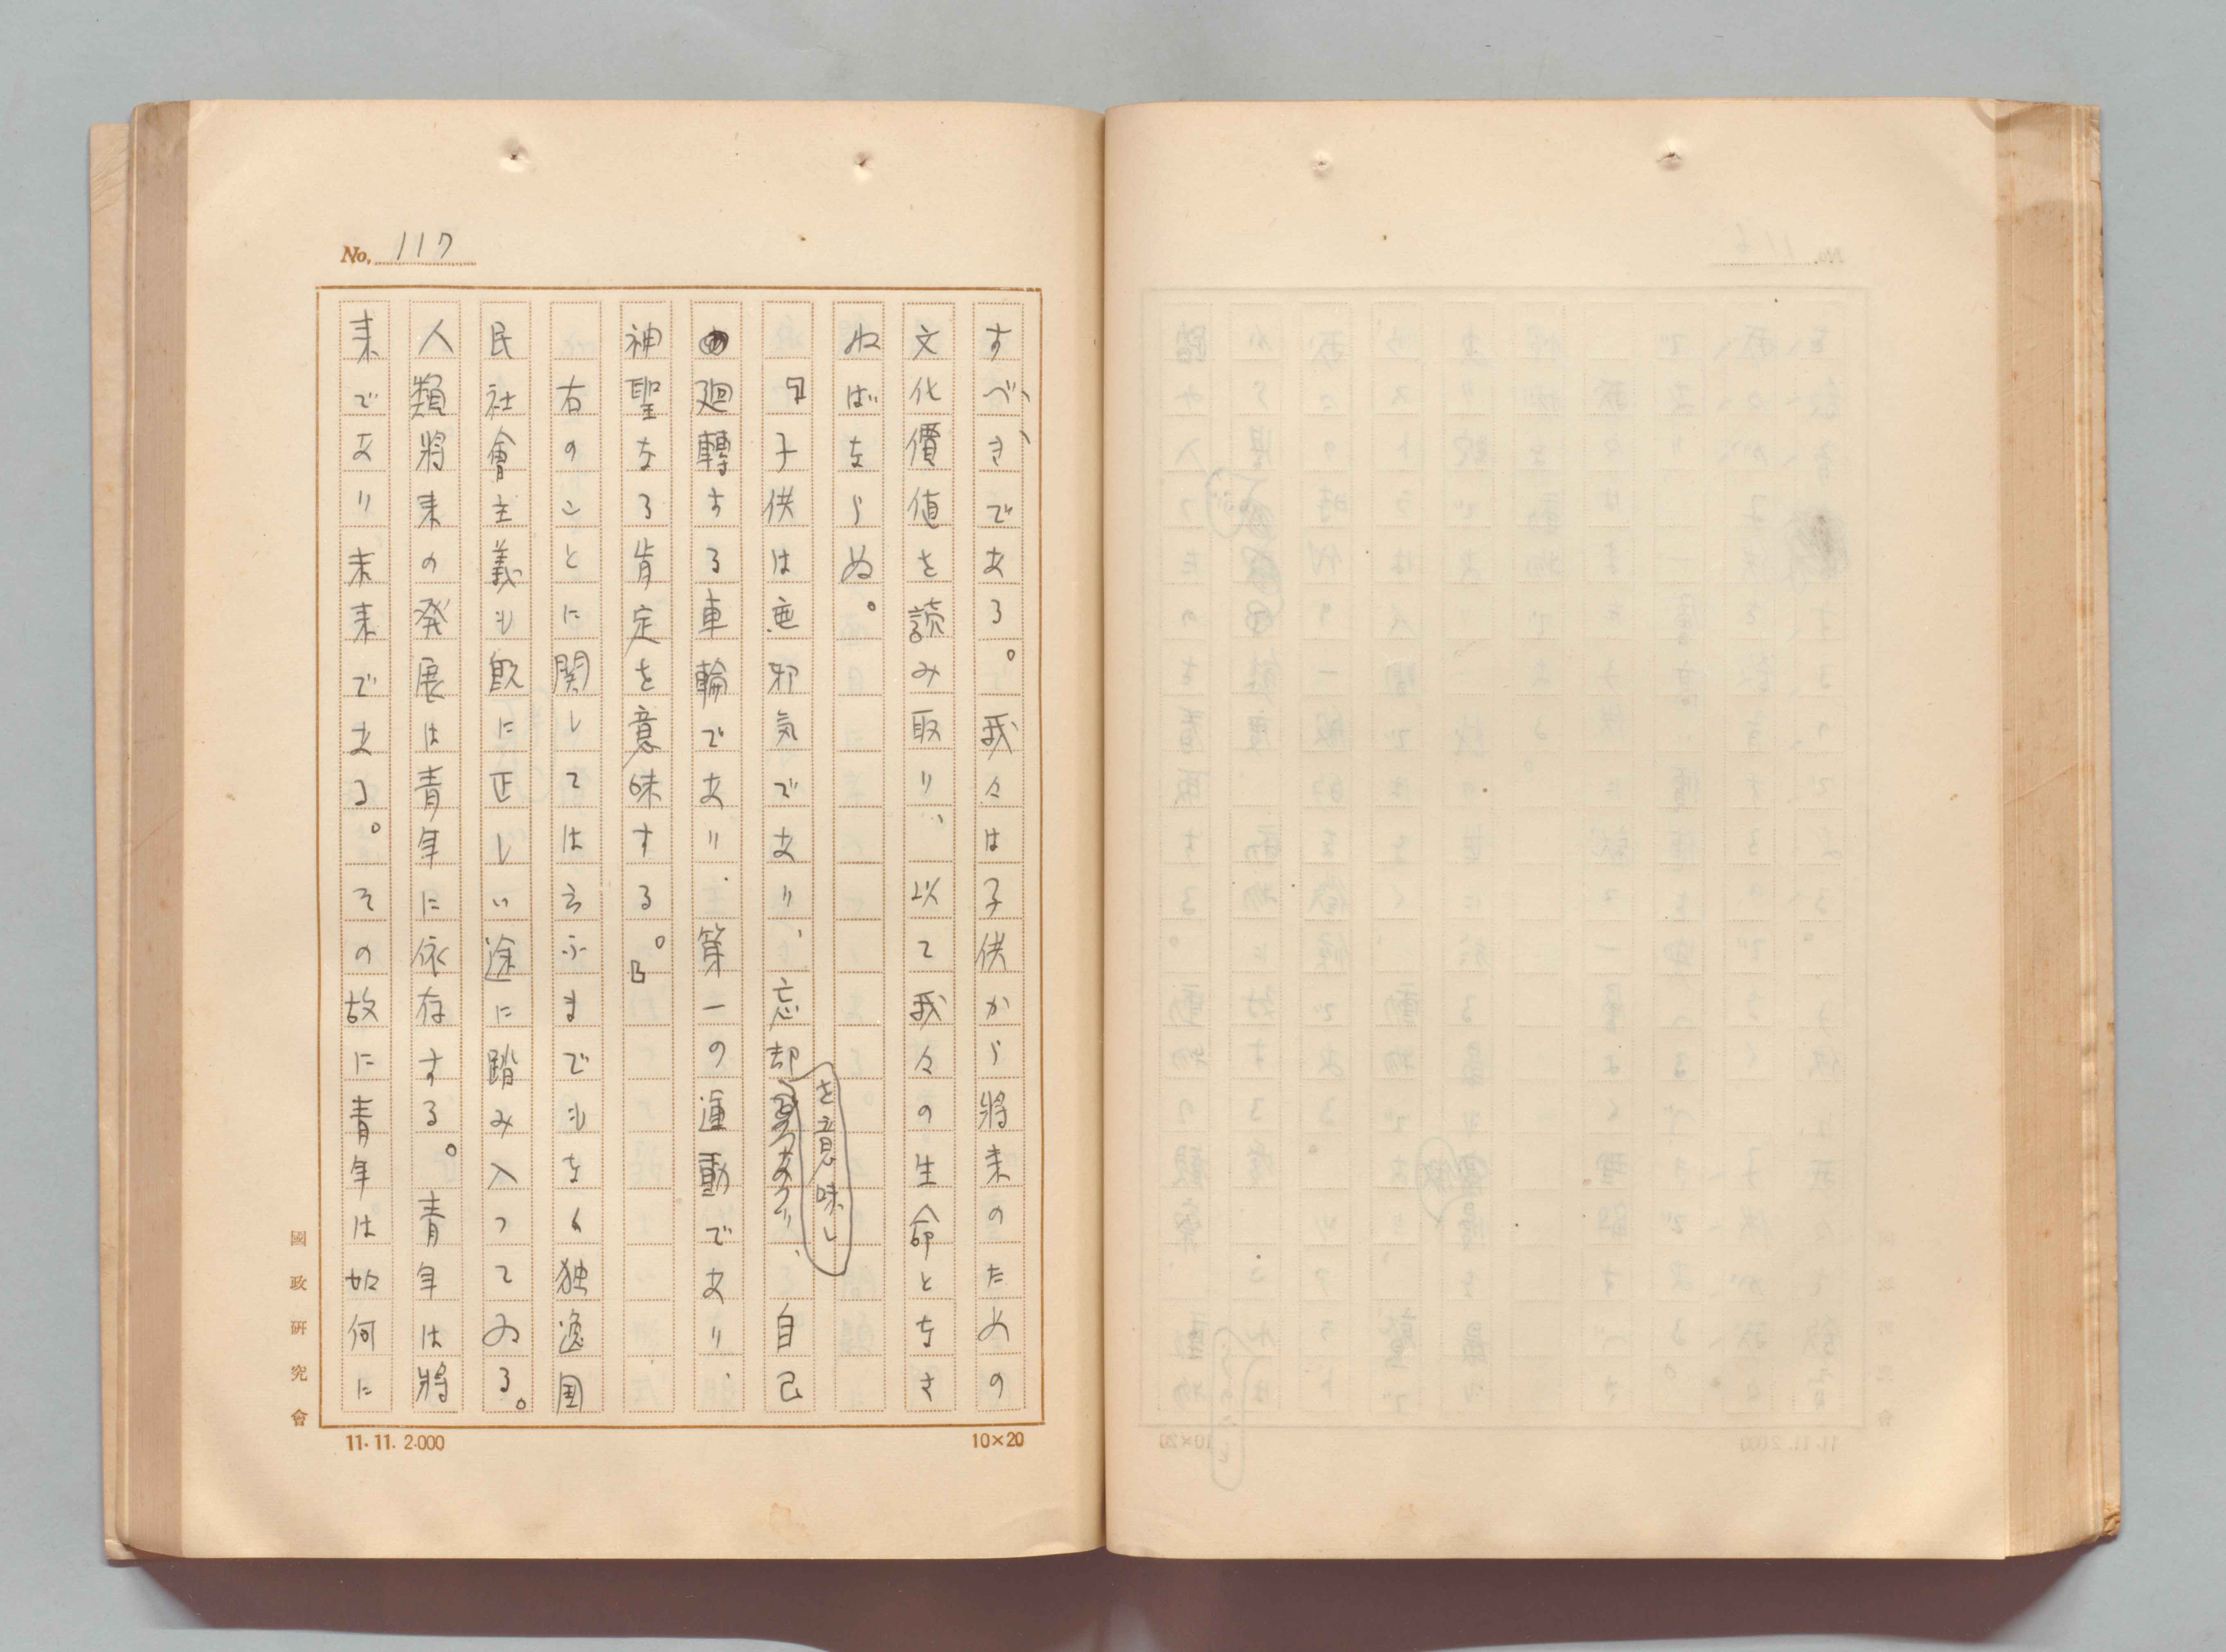 No. 117
すべきである。我々は子供から將来のための
文化價値を読み取り、以て我々の生命となさ
ねばならぬ。
『子供は無邪気であり、忘却を意味し、自己
廻轉する車輪であり、第一の運動であり、
神聖なる肯定を意味する。』
右のことに関しては云ふまでもなく独逸国
民社會主義も既に正しい途に踏み入つてゐる。
人類將来の発展は青年に依存する。青年は將
来であり未来である。その故に青年は如何に
國政研究會
11.11.2.000
10×20